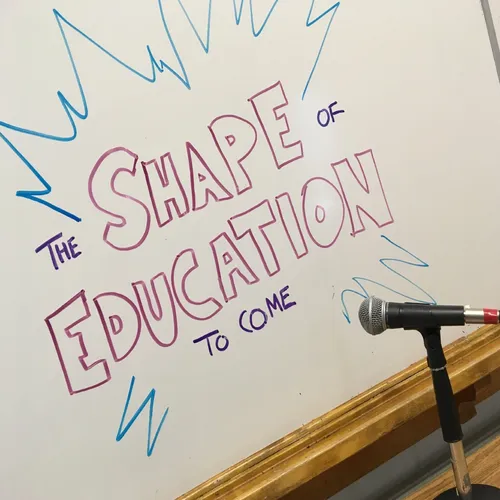 THE SHAPE OF
EDUCATION
TO COME